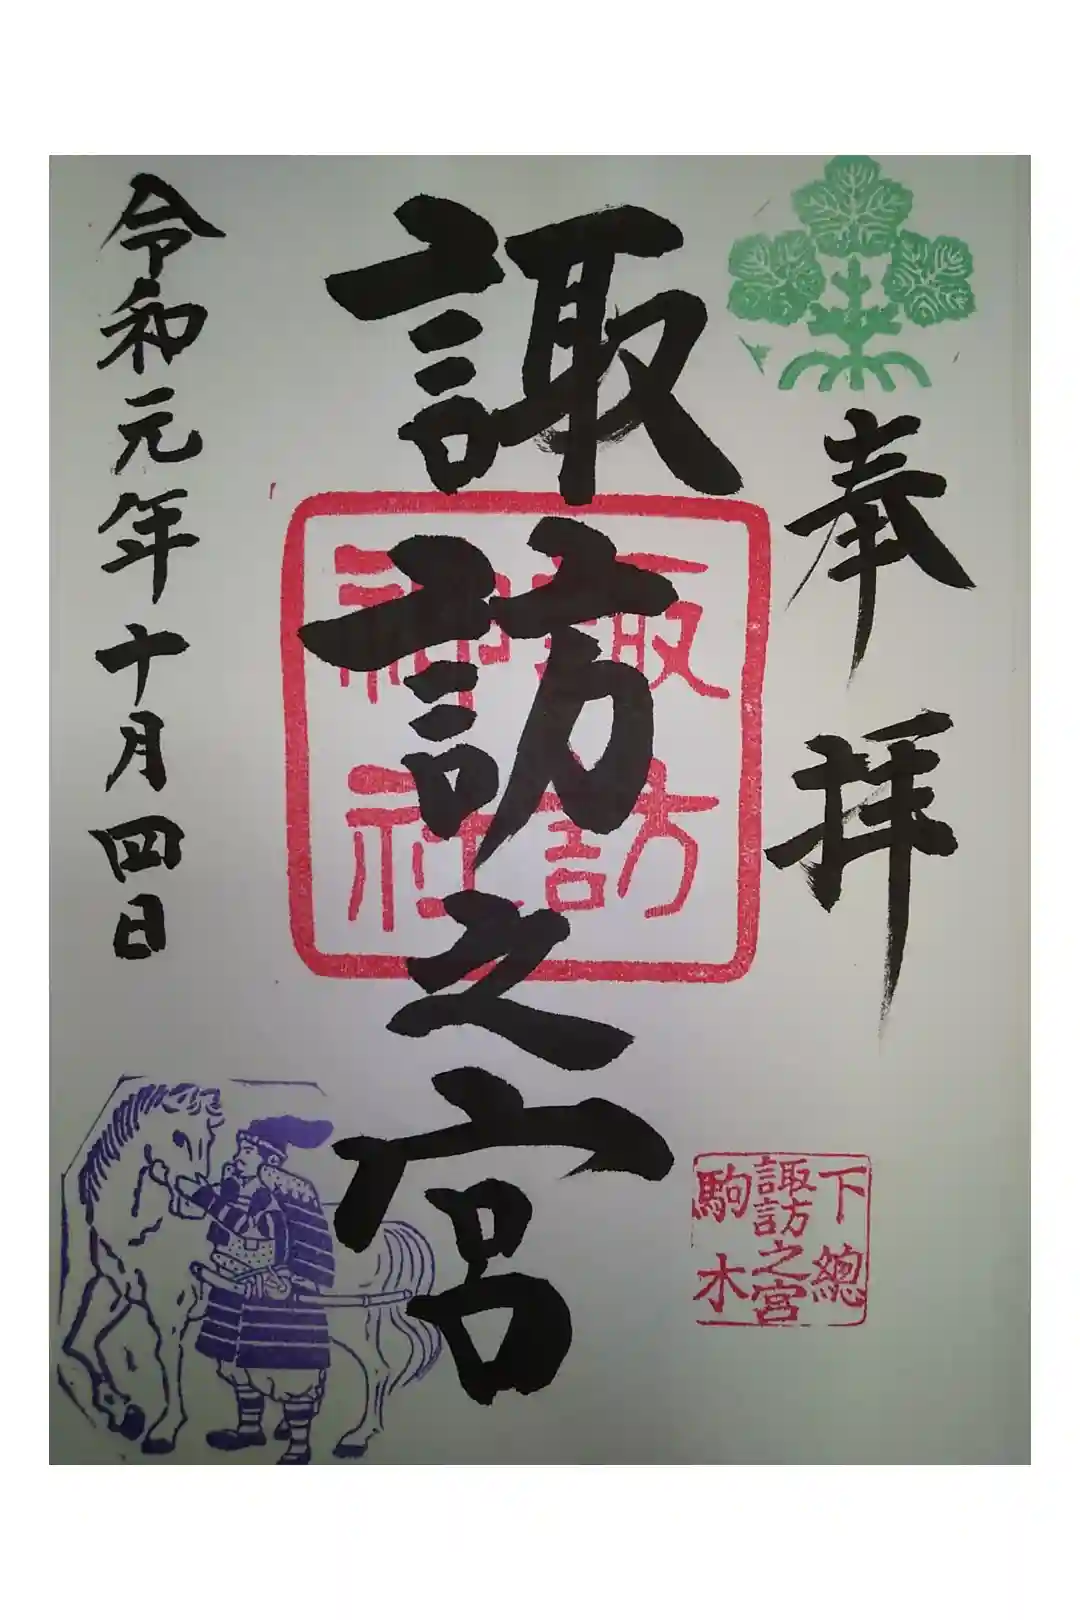 奉拝
下總
諏訪之宮
駒木
諏訪之宮
諏訪
神社
令和元年十月四日